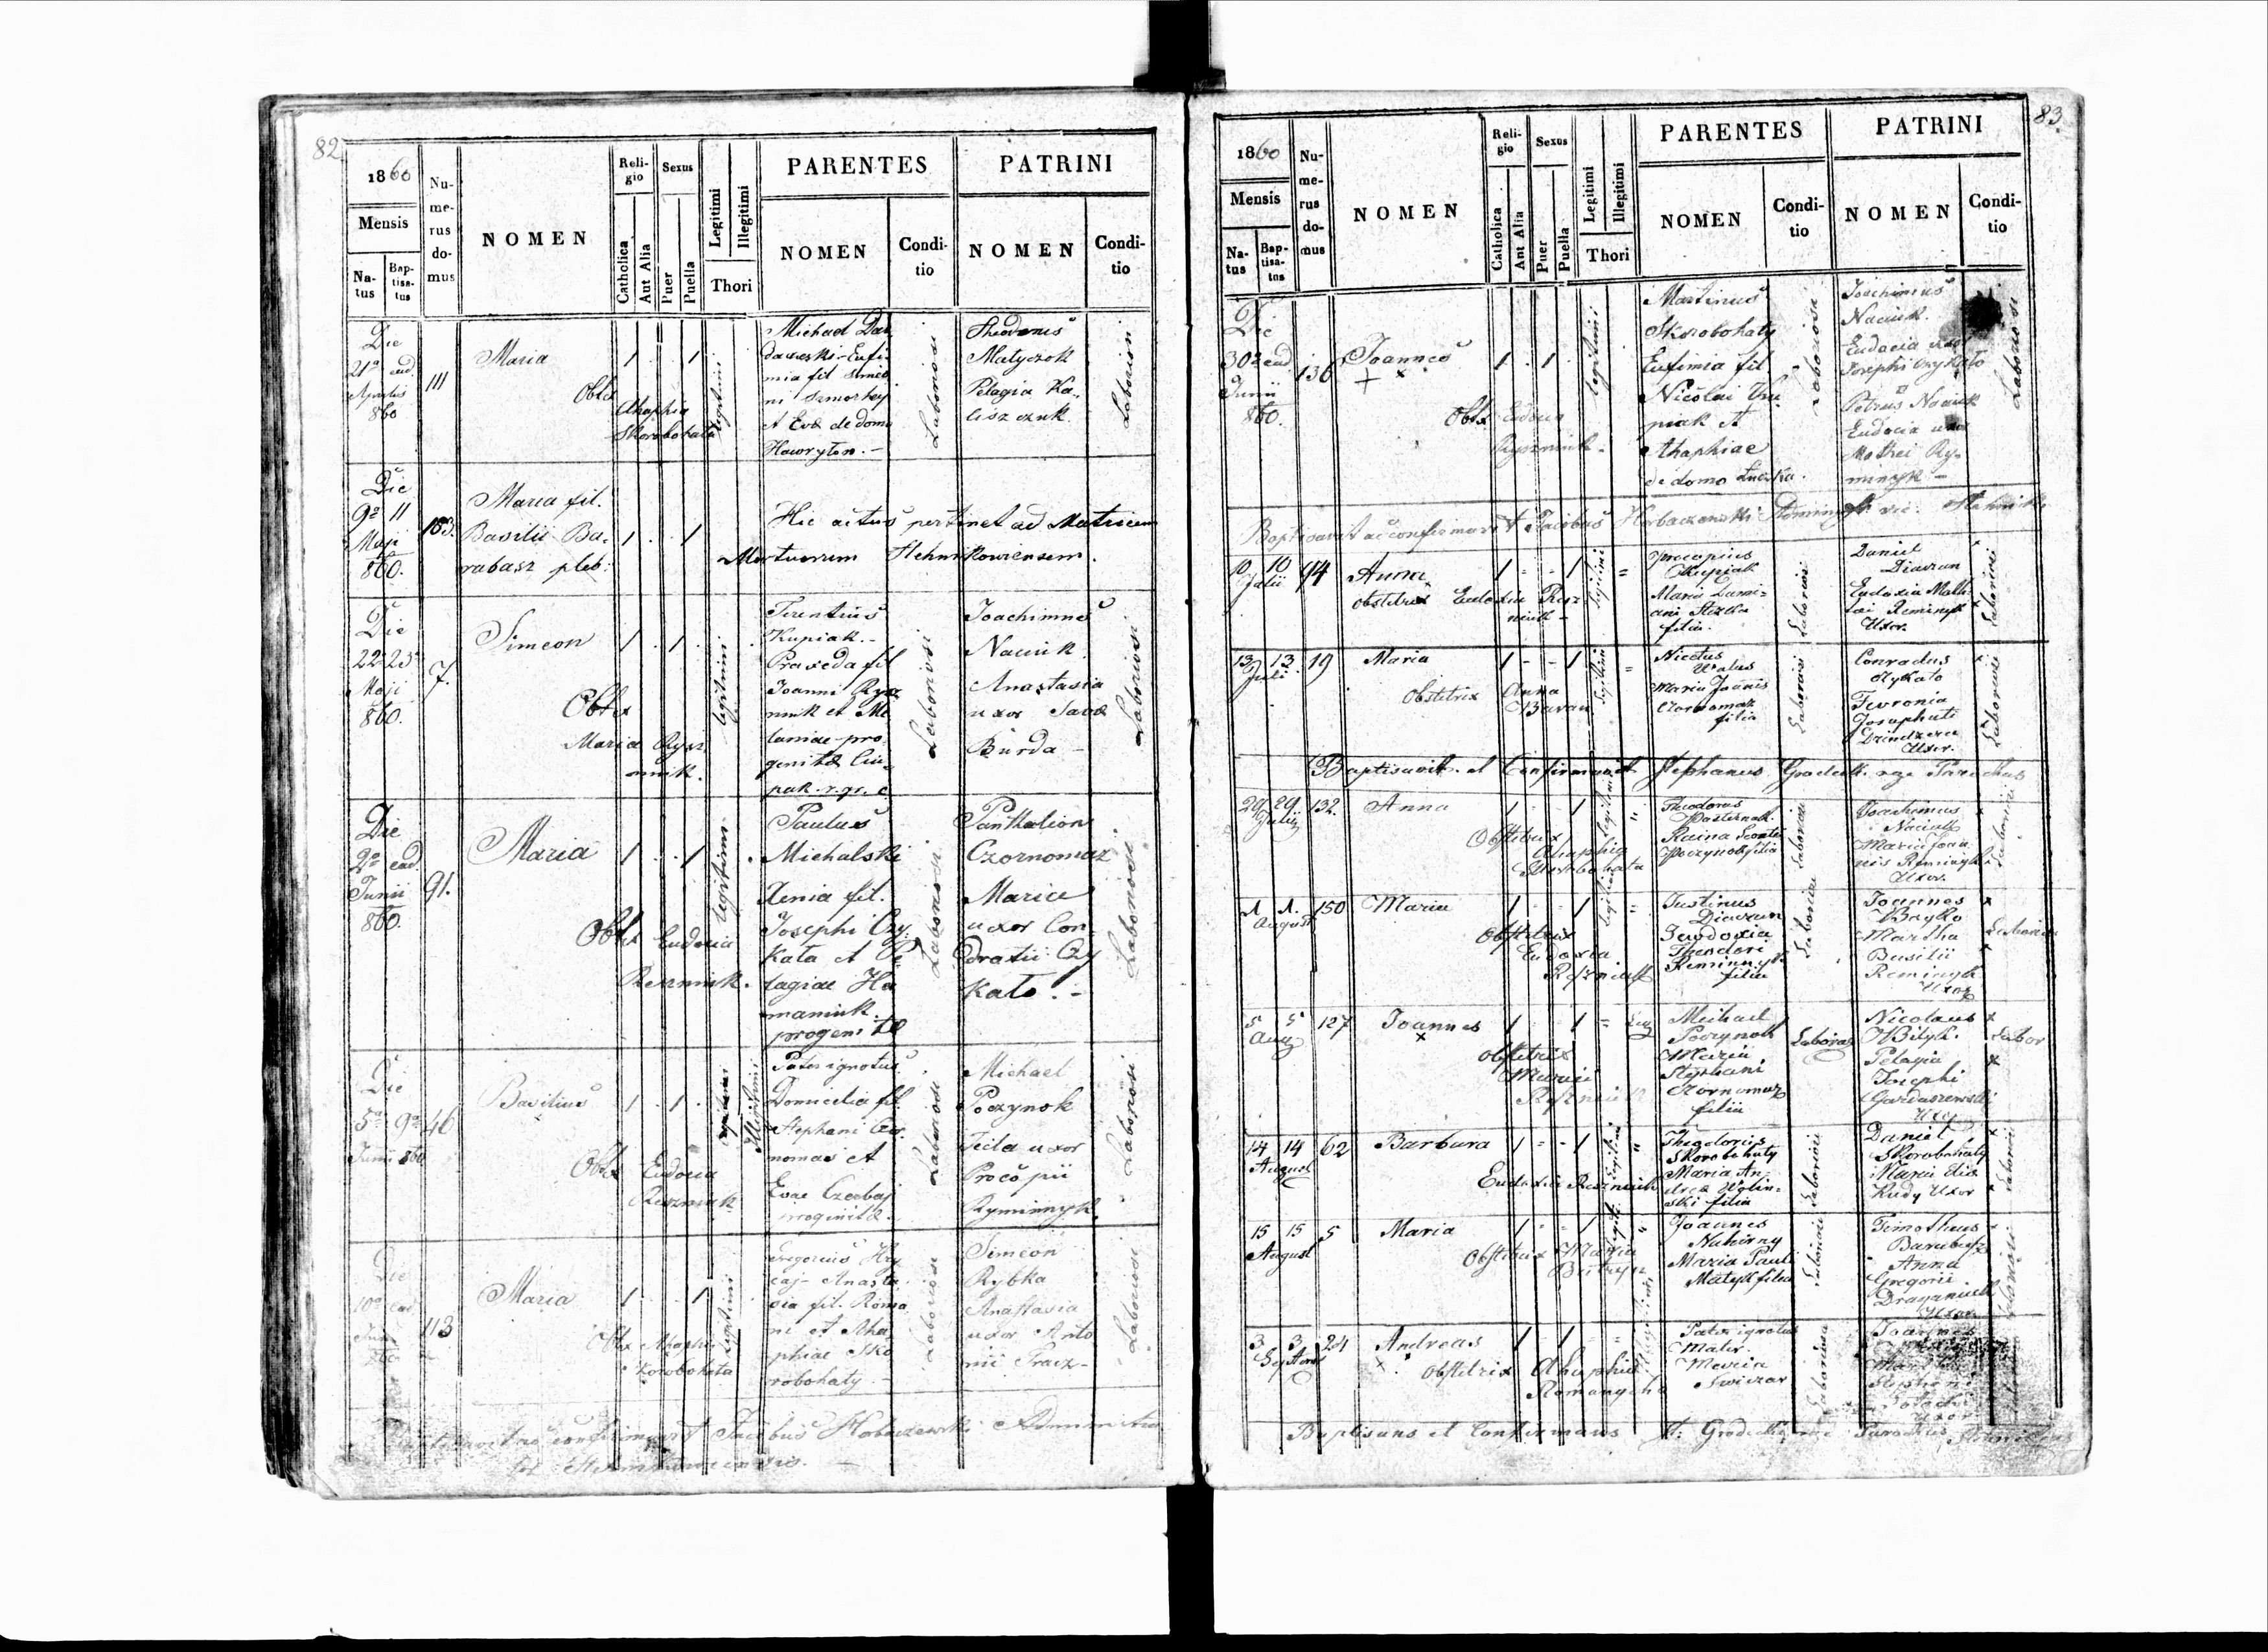 82
1860
Mensis
Natus
Baptisatus
Numerus domus
NOMEN
Religio
Catholica
Aut Alia
Sexus
Puer
Puella
Legitimi
Illegitimi
Thori
PARENTES
NOMEN
Conditio
PATRINI
NOMEN
Conditio
Die
21a ead
Aprilis
860
111
Maria
1 . . 1
Obtx
Ahaphia
Skorobohata
legitimi
Michael Dar
dawski - Eufi
mia fil Simeo
ni
et Evæ de domo
Hawryton. -
Laboriosi
Theodorus
Matyczok
Pelagia Ka-
lisz czuk.
Laboriosi
Die
9a 11
Maji
860.
183.
Maria fil.
Basilii Ba-
rabasz pleb:
1 . . 1
Hic actus pertinet ad Matricem
Mortuorum Stehnikowiensem.
Die
22 25
Maji
860.
7.
Simeon
1 . 1 .
Obtx
Maria Rysz
nnik.
legitimi
Terentius
Kupiak. -
Praxeda fil
Joanni Rysz
nnik et Me
laniae - pro
genitæ Ciu-
pak r. gr. c
Laboriosi
Joachimus
Naciuk
Anastasia
uxor Savæ
Burda -
Laboriosi
Die
9a ead
Junii
860.
91.
Maria
1 . . 1
Obtx Eudocia
Reszniuk.
legitimi
Paulus
Michalski
Xenia fil.
Josephi Czy
kata et Pe
lagiae Ha
maniuk
progenitæ
Laboriosi
Panthalion
Czornomaz
Maria
uxor Con-
dratii Czy
kato. -
Laboriosi
Die
5a 9a
Junii 860
46
Basilius
1 . 1 .
Obtx Eudocia
Reszniuk
Illegitimi
Pater ignotus
Domicelia fil
Stephani Czor
nomaz et
Evae Czabaj
progenitæ
Laboriosi
Michael
Poczynok
Tecla uxor
Procopii
Ryminnyk
Laboriosi
Die
10a ead
Junii
860
113
Maria
1 . . 1
Obtx Ahaphia
Skorobohata
legitimi
Gregorius Hry
caj - Anasta
sia fil. Roma
ni et Aha
phiae Sko
robohaty -
Laboriosi
Simeon
Rybka
Anastasia
uxor Anto
nii Tracz -
Laboriosi
Baptisavit ac confirmavit Jacobus Horbaczewski Administra
83.
1860
Mensis
Natus
Baptisatus
Numerus domus
NOMEN
Religio
Catholica
Aut Alia
Sexus
Puer
Puella
Legitimi
Illegitimi
Thori
PARENTES
NOMEN
Conditio
PATRINI
NOMEN
Conditio
Die
30a ead
Junii
860.
136
Joannes
1 . 1 .
Obtx Eudocia
legitimi
Martinus
Skorobohaty
Eufimia fil
Nicolai Ku
piak et
Ahaphiae
de domo
Laboriosi
Joachimus
Naciuk.
Eudocia uxor
Josephi Czykato
Petrus Naciuk
Eudocia uxor
Mathei Ry-
minyk -
Laboriosi
Baptisavit ac confirmavit Jacobus Horbaczewski
10 10
Julii
94
Anna
obstetrix Eudoxia Resz
niuk -
1 - - 1
legitimi
Procopius
Kupiak
Maria Dami-
ani
filia.
Laboriosi
Daniel
Diawun
Eudoxia Math
taei Reminyk
Uxor.
Laboriosi
13 13
Julii
19
Maria
Obstetrix Anna
Baran
1 - - 1
Nicetus
Walus
Maria Joannis
Czornomaz
filia
Laboriosi
Conradus
Czykato
Fevronia
Josaphati
Uxor.
Laboriosi
Baptisavit et Confirmavit Stephanus Grodecki Parochus
29 29
Julii
132.
Anna
Obstetrix
Ahaphia
Skorobohata
legitimi
Theodorus
Pasternak
Poczynok filia
Laboriosi
Joachimus
Naciuk
Maria Joan
nis Reminyk
Uxor.
Laboriosi
1 1.
August
150
Maria
Obstetrix
Eudoxia
Reszniuk
Justinus
Diawun
Eudoxia
Theodori
Reminnyk
filia
Laboriosi
Joannes
Martha
Basilii
Reminyk
Uxor
Laboriosi
5 5
Aug
127
Joannes
obstetrix
Maria
Reszniuk
Leg
Michael
Poczynok
Maria
Stephani
Czornomaz
filia
Laborios
Nicolaus
Bilyk.
Pelagia
Josephi
Uxor
Labor
14 14
August
62
Barbara
Eudoxia Reszniuk
Theodorus
Skorobohaty
Maria An-
dreæ Wolin-
ski filia
Laboriosi
Daniel
Skorobohaty
Maria Eliæ
Rudy Uxor
Laboriosi
15 15
August
5
Maria
Obstetrix Maria
Joannes
Nahirny
Maria Pauli
Matyk filia
Laboriosi
Timotheus
Barabasz
Anna
Gregorii
Draganiuk
Uxor
3 3
Septem
24
Andreas
Obstetrix Ahaphia
Romanycha
Illegitimi
Pater ignotus
Mater
Maria
Swiczar
Laboriosa
Joannes
Uxor
Baptisans et Confirmans St: Grodecki Parochus